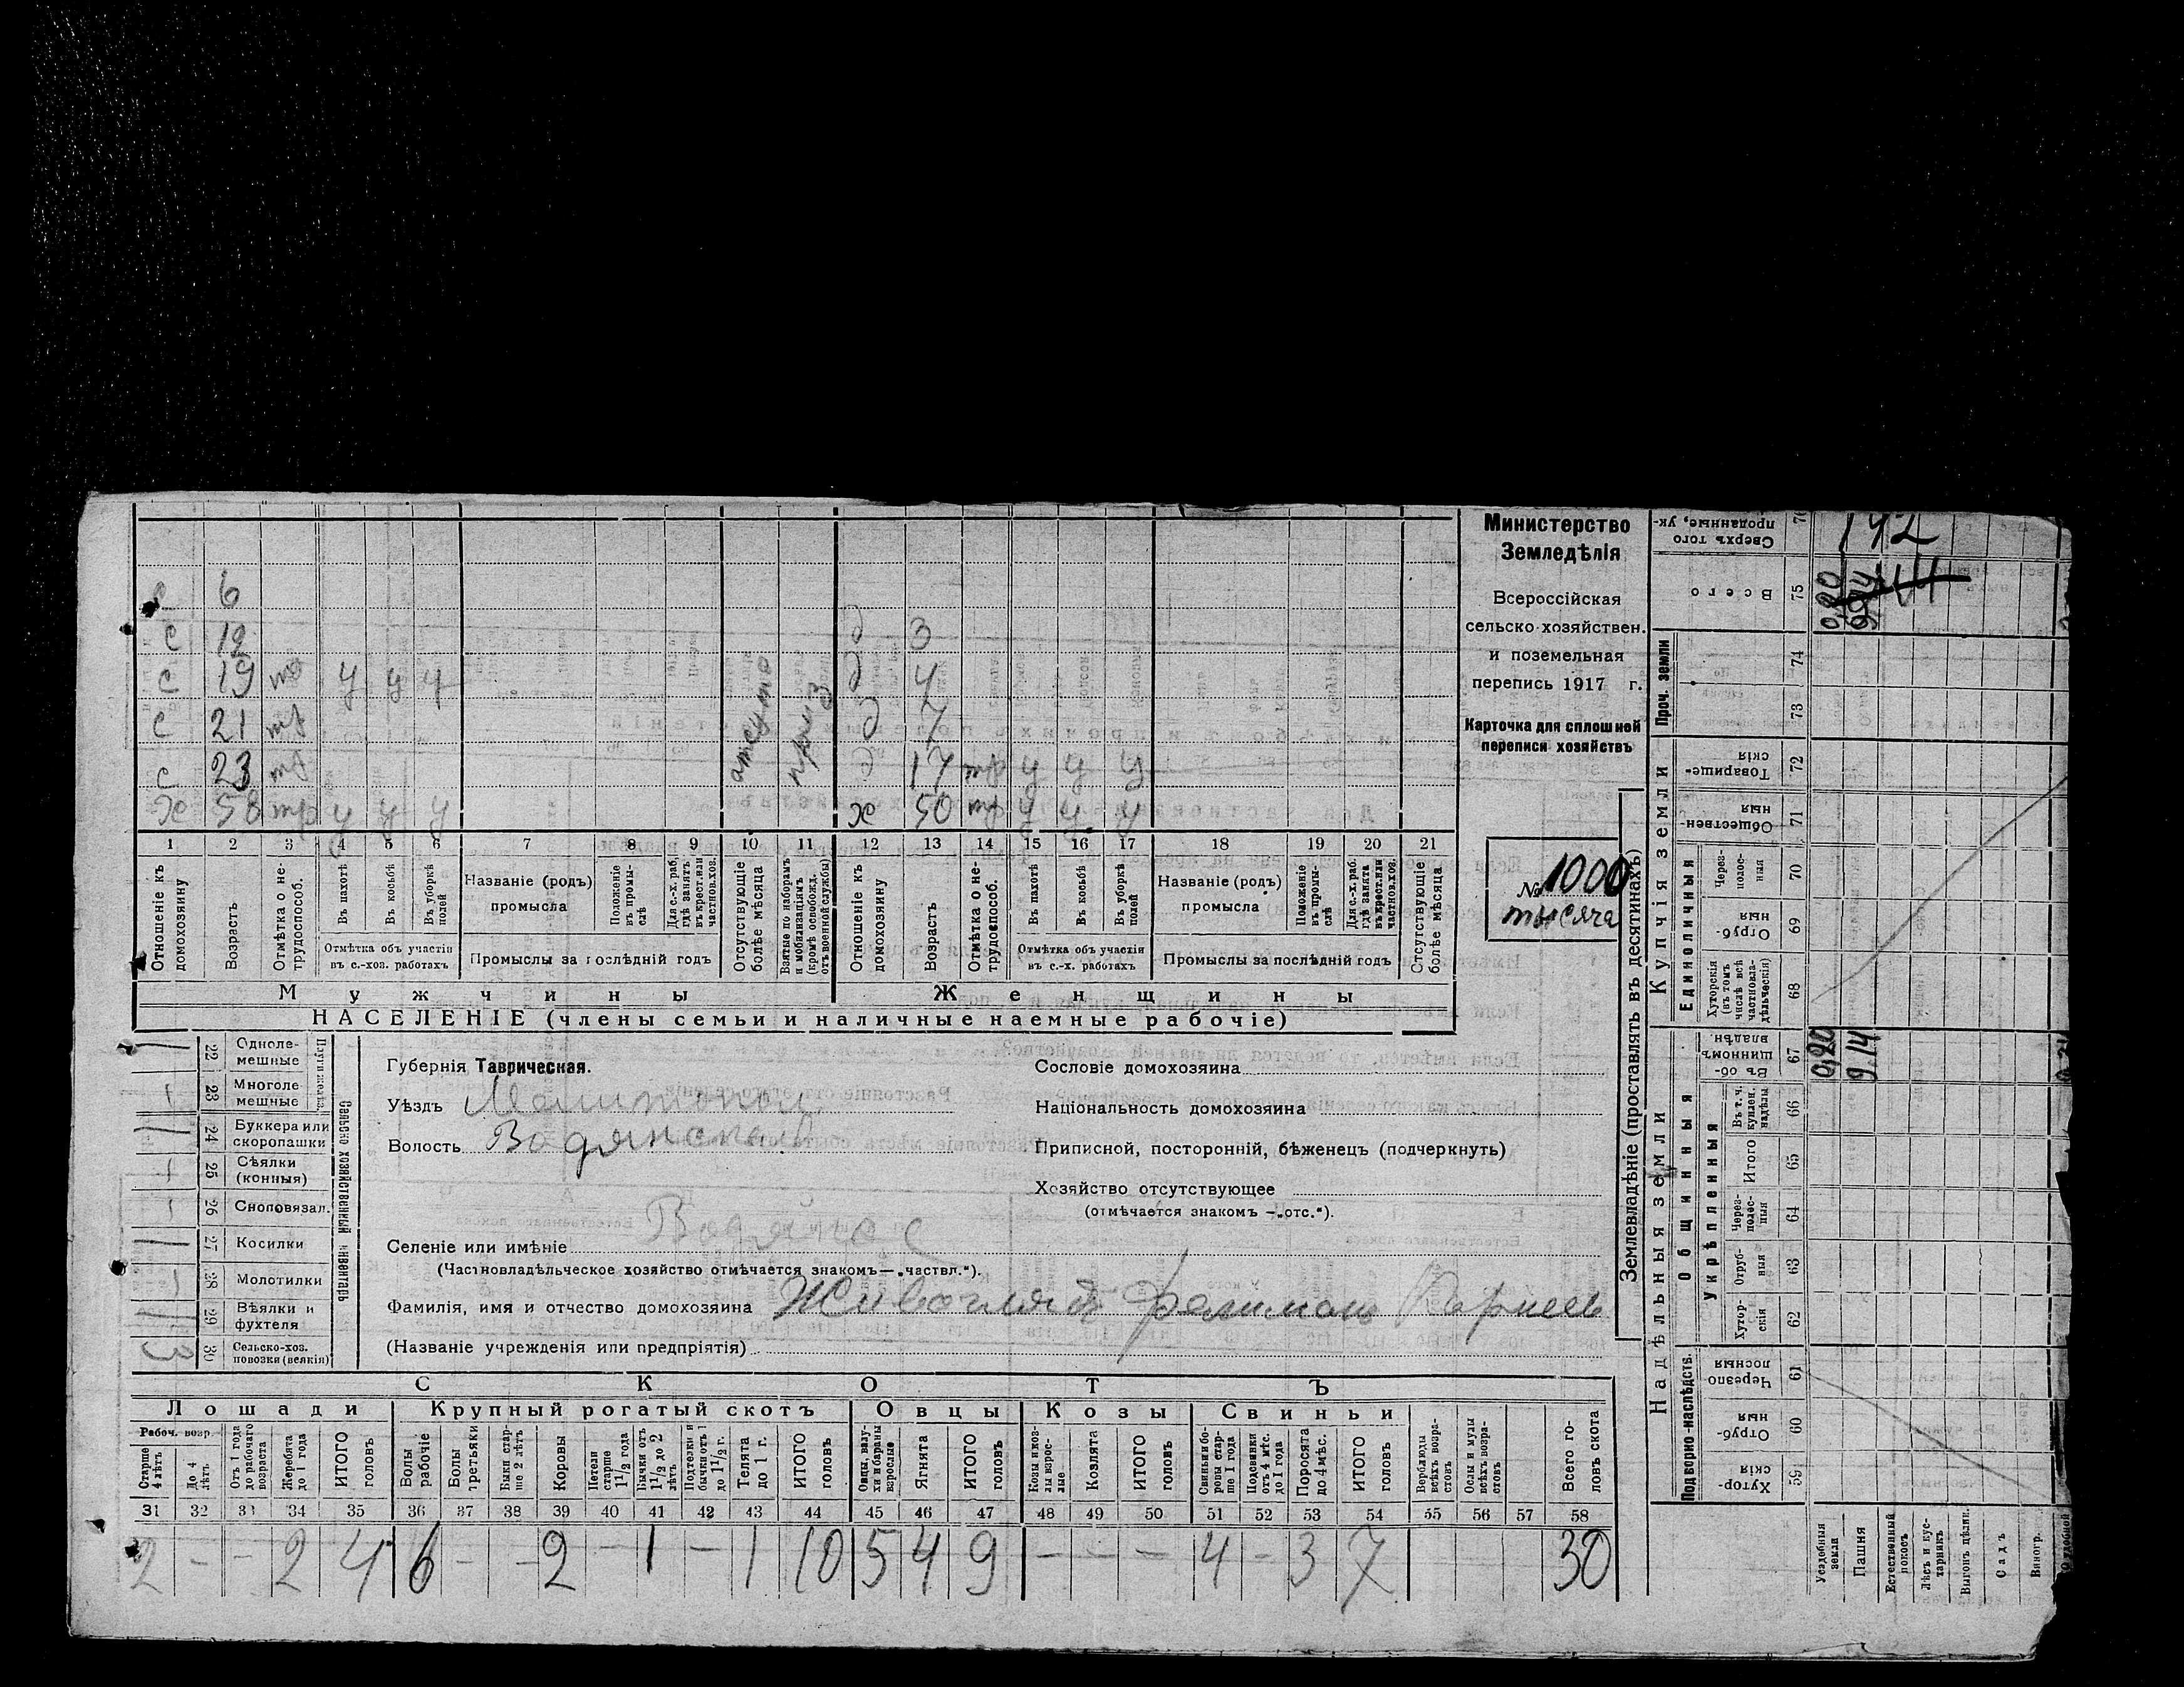 6
с 12 д 3
с 19 тр у у у д 4
с 21 тр д 7
с 23 тр д 17 тр у у у
х 58 тр у у у х 50 тр у у у
1 2 3 4 5 6 7 8 9 10 11 12 13 14 15 16 17 18 19 20 21
Отношеніе къ домохозяину
Возрастъ
Отмѣтка о не-трудоспособ.
Въ пахотѣ
Въ косьбѣ
Въ уборкѣ полей
Отмѣтка объ участіи въ с.-хоз. работахъ
Названіе (родъ) промысла
Положеніе въ промы-слѣ
Для с.-х. раб. гдѣ занятъ въ крест. или частнов. хоз.
Промыслы за послѣдній годъ
Отсутствующіе болѣе мѣсяца
Взятые по наборамъ и мобилизаціямъ (кромѣ освобожд. отъ военной службы)
Отношеніе къ домохозяину
Возрастъ
Отмѣтка о не-трудоспособ.
Въ пахотѣ
Въ косьбѣ
Въ уборкѣ полей
Отмѣтка объ участіи въ с.-х. работахъ
Названіе (родъ) промысла
Положеніе въ промы-слѣ
Для с.-х. раб. гдѣ занята въ крест. или частнов. хоз.
Промыслы за послѣдній годъ
Отсутствующіе болѣе мѣсяца
Мужчины Женщины
НАСЕЛЕНІЕ (члены семьи и наличные наемные рабочіе)
Министерство
Земледѣлія
Всероссійская
сельско-хозяйствен.
и поземельная
перепись 1917 г.
Карточка для сплошной
переписи хозяйствъ
№ 1000
тысяча
22 Одноле-мешные
23 Многоле мешные
24 Буккера или скоропашки
25 Сѣялки (конныя)
26 Сноповязал.
27 Косилки
28 Молотилки
29 Вѣялки и фухтеля
30 Сельско-хоз. повозки (всякія) 3
Сельско хозяйственный инвентарь
Губернія Таврическая.
Уѣздъ Мелитопол
Волость Водянская
Селеніе или имѣніе Водяное
(Частновладѣльческое хозяйство отмѣчается знакомъ—„частвл.“).
Фамилія, имя и отчество домохозяина Живогляд Филимон Корнеев
(Названіе учрежденія или предпріятія)
Сословіе домохозяина
Національность домохозяина
Приписной, посторонній, бѣженецъ (подчеркнуть)
Хозяйство отсутствующее
(отмѣчается знакомъ —„отс.“).
СКОТЪ
Лошади Крупный рогатый скотъ Овцы Козы Свиньи
Рабоч. возр.
Старше 4 лѣтъ
До 4 лѣтъ
Отъ 1 года до рабочаго возраста
Жеребята до 1 года
ИТОГО головъ
Волы рабочіе
Волы третьяки
Быки стар-ше 2 лѣтъ
Коровы
Нетели старше 1½ года
Бычки отъ 1½ до 2 лѣтъ
Подтелки и бычки отъ 1 до 1½ г.
Телята до 1 г.
ИТОГО головъ
Овцы, валу-хи и бараны взрослые
Ягнята
ИТОГО головъ
Козы и коз-лы взрос-лые
Козлята
ИТОГО головъ
Свиньи и бо-ровы стар-ше 1 года
Подсвинки отъ 4 мѣс. до 1 года
Поросята до 4 мѣс.
ИТОГО головъ
Верблюды всѣхъ возра-стовъ
Ослы и мулы всѣхъ возра-стовъ
Всего го-ловъ скота
31 32 33 34 35 36 37 38 39 40 41 42 43 44 45 46 47 48 49 50 51 52 53 54 55 56 57 58
2 - - 2 4 6 - - 2 - 1 - 1 10 5 4 9 - - - 4 - 3 7 30
Землевладѣніе (проставлять въ десятинахъ)
Надѣльныя земли
Купчія земли
Проч. земли
Подворно-наслѣдств.
Общинныя
Укрѣпленныя
Единоличныя
Сверхъ того проданные, ук-
Всего 75
74
73
Товарище-скія 72
Обществен-ныя 71
Через-полос-ныя 70
Отруб-ныя 69
Хуторскія (въ томъ числѣ всѣ частновла-дѣльческія) 68
Въ об-щинномъ владѣн. 67
Въ т. ч. куплен. надѣлы 66
Итого 65
Через-полос-ныя 64
Отруб-ныя 63
Хутор-скія 62
Черезпо лосныя 61
Отруб-ныя 60
Хутор-скія 59
142
0,20
9.14
Усадебныя земли
Пашня
Естественный покосъ
Лѣсъ и кус-тарникъ
Выгонъ цѣлик.
Садъ
Виногр.